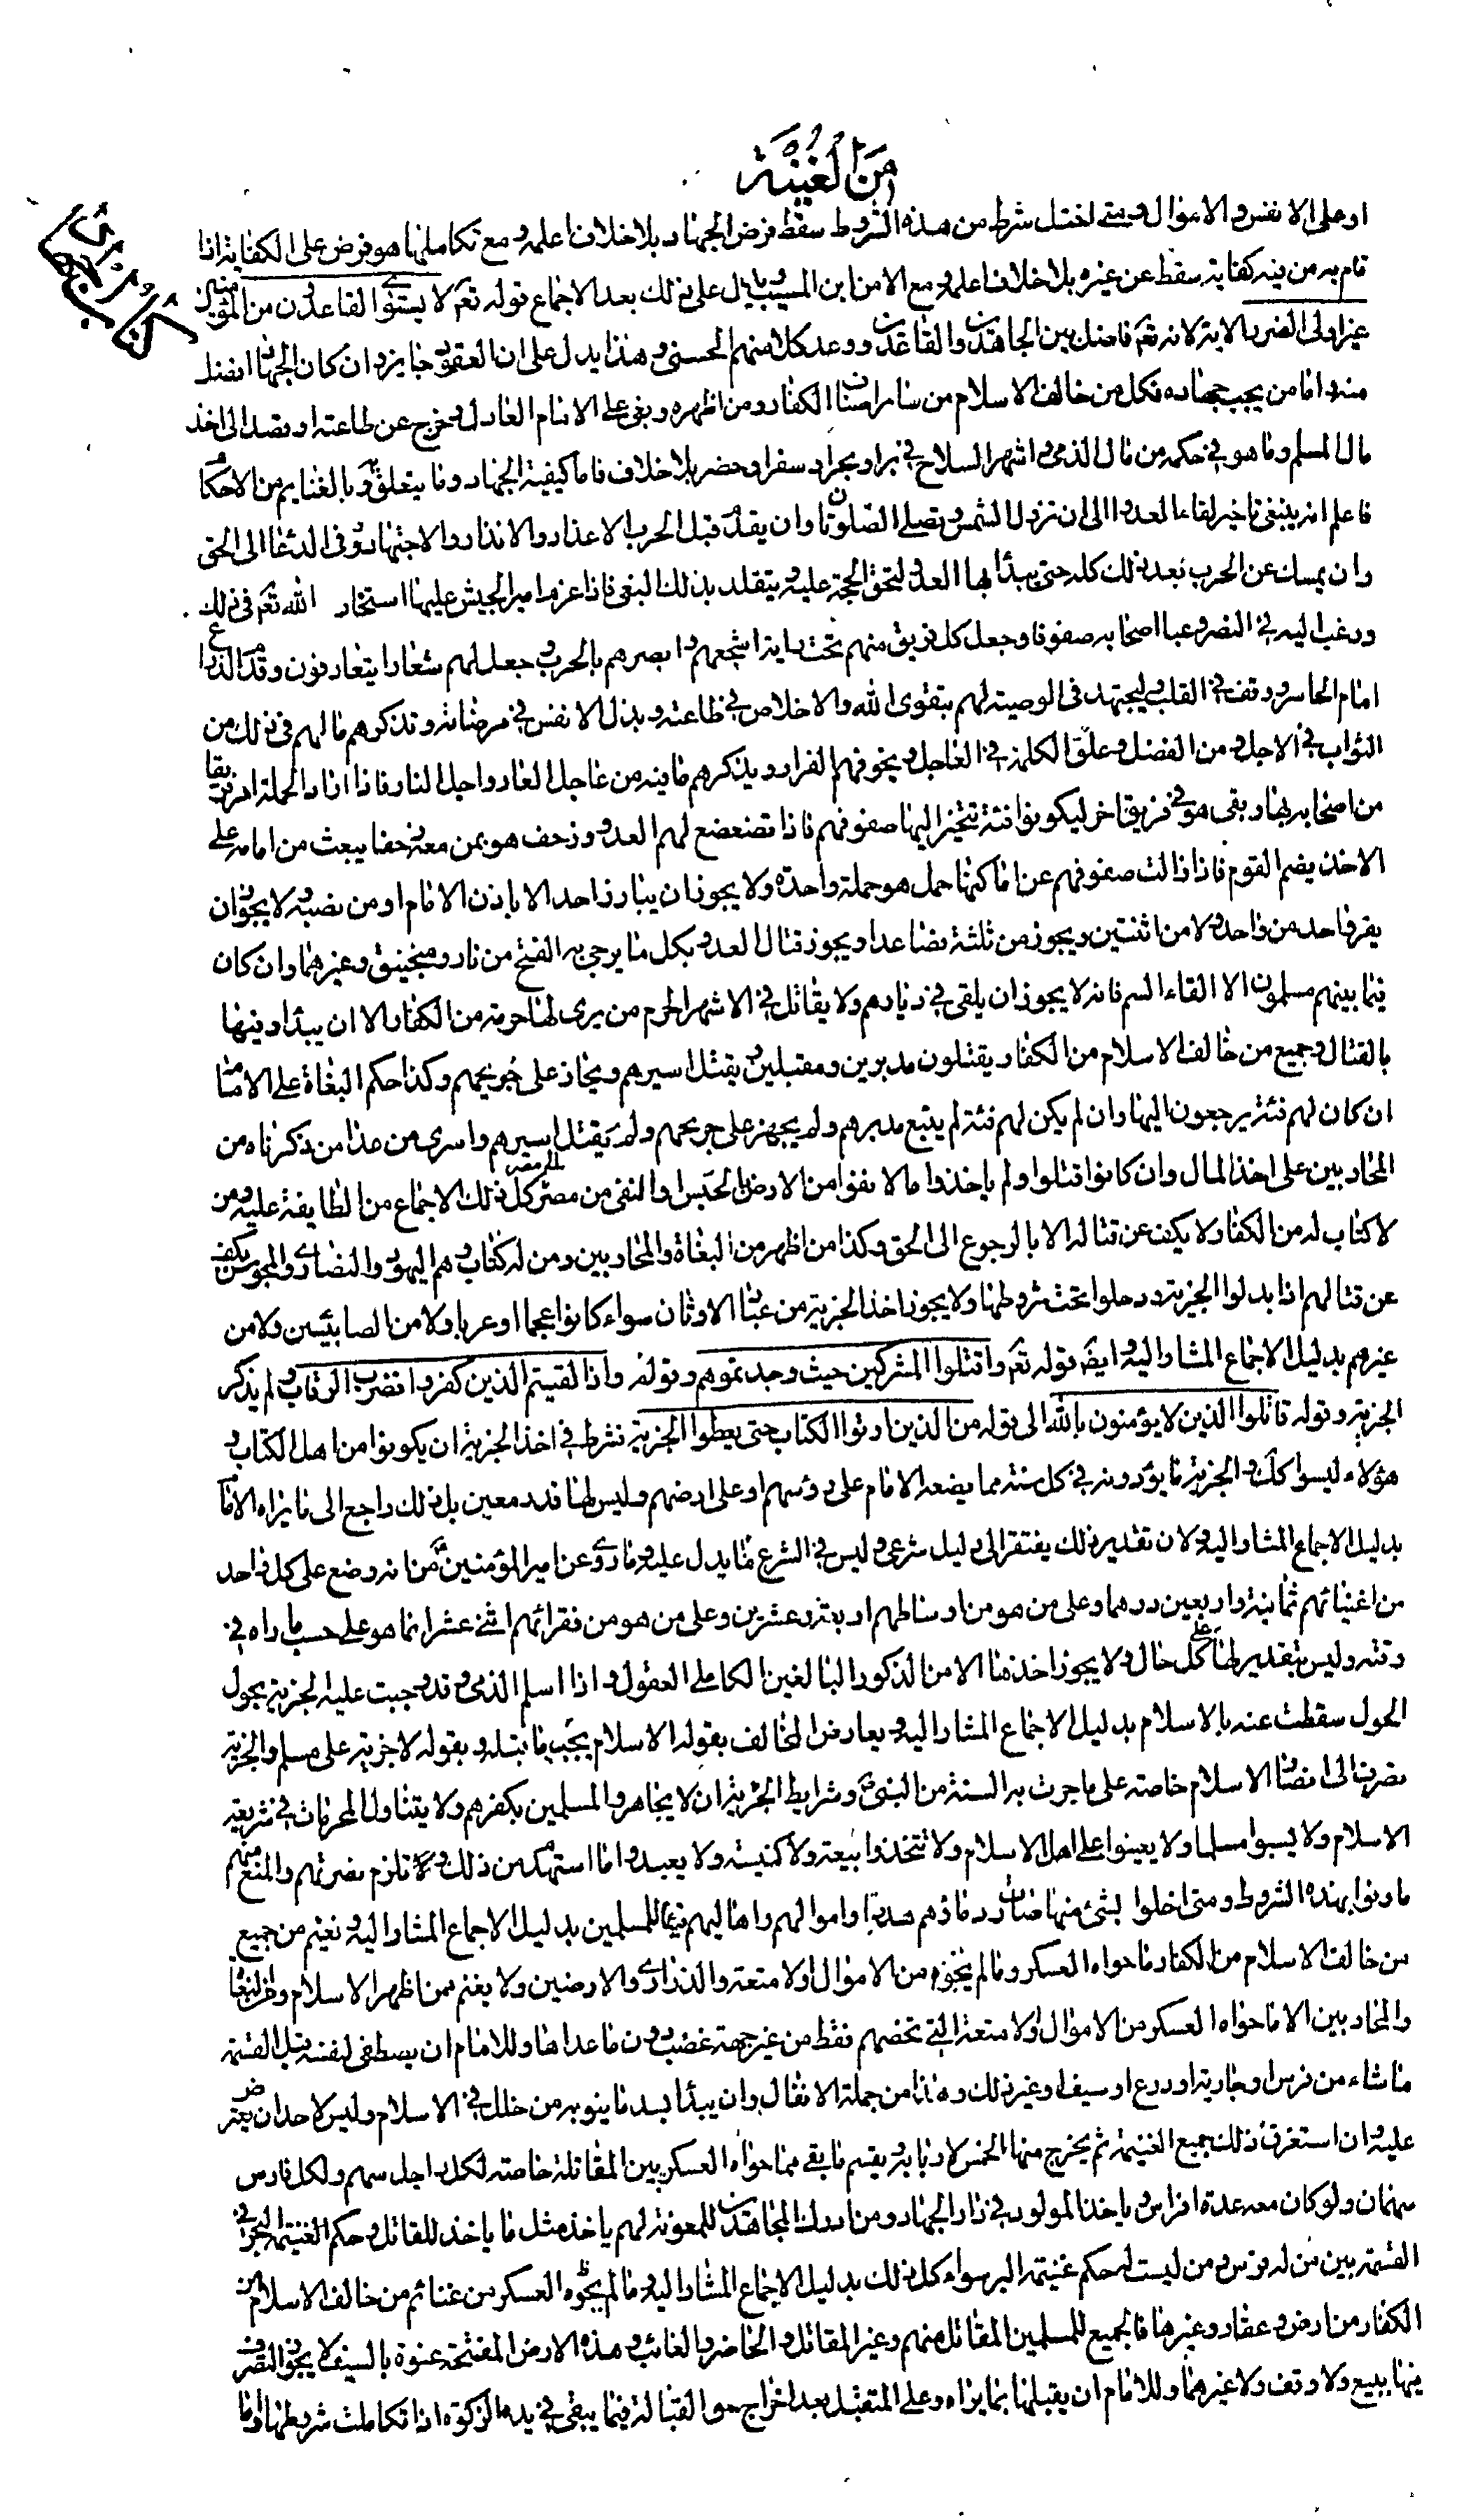 من الغنية
او على الانفس والاموال ومتى اختل شرط من هذه الشروط سقط فرض الجهاد بلا خلاف اعلمه ومع تكاملها هو فرض على الكفاية اذا
قام به من فيه كفاية سقط عن غيره بلا خلاف اعلمه مع الا من ابن المسيب يدل على ذلك بعد الاجماع قوله تعم لا يستوي القاعدون من المؤمنين
غير اولى الضرر الاية لانه تعم فاضل بين المجاهدين والقاعدين ووعد كلا منهم الحسنى وهذا يدل على ان القعود جايز وان كان الجهاد افضل
منه واما من يجب جهاده فكل من خالف الاسلام من ساير اصناف الكفار ومن اظهره وبغى على الامام العادل وخرج عن طاعته او قصد الى اخذ
مال المسلم وما هو في حكمه من مال الذمي واشهر السلاح في بر او بحر او سفر او حضر بلا خلاف فاما كيفية الجهاد وما يتعلق به وبالغنايم من الاحكام
فاعلم انه ينبغى تاخير لقاء العدو الى ان تزول الشمس وتصلى الصلوتان وان يقدم قبل الحرب الاعذار والانذار والاجتهاد في الدعاء الى الحق
وان يمسك عن الحرب بعد ذلك كله حتى يبدأ بها العدو لتحق الحجة عليه ويتقلد بذلك البغى فاذا عزم امير الجيش عليها استخار الله تعم في ذلك
ورغب اليه في النصر وعبا اصحابه صفوفا وجعل كل فريق منهم تحت راية اشجعهم وابصرهم بالحرب وجعل لهم شعارا يتعارفون وقدم الدارع
امام الحاسر ووقف في القلب وليجتهد في الوصية لهم بتقوى الله والاخلاص في طاعته وبذل الانفس في مرضاته وتذكرهم ما لهم في ذلك من
الثواب في الاجل ومن الفضل وعلو الكلمة في العاجل ويخوفهم الفرار ويذكرهم ما فيه من عاجل العار واجل النار فاذا اراد الحملة امر فريقا
من اصحابه بها وبقى هو في فريق اخر ليكونوا فئة تتحيز اليها صفوفهم فاذا تضعضع لهم العدو وزحف هو بمن معه زحفا يبعث من امامه على
الاخذ بضم القوم فاذا زالت صفوفهم عن اماكنها حمل هو حملة واحدة ولا يجوز ان يبارز احد الا باذن الامام او من نصبه ولا يجوز ان
يفر واحد من واحد ولا من اثنين ويجوز من ثلثة فصاعدا ويجوز قتال العدو بكل ما يرجى به الفتح من نار ومنجنيق وغيرهما وان كان
فيما بينهم مسلمون الا القاء السم فانه لا يجوز ان يلقى في ديارهم ولا يقاتل في الاشهر الحرم من يرى لها حرمة من الكفار الا ان يبدأوا فيها
بالقتال وجميع من خالف الاسلام من الكفار يقتلون مدبرين ومقبلين ويقتل اسيرهم ويجاز على جريحهم وكذا حكم البغاة على الامام
ان كان لهم فئة يرجعون اليها وان لم يكن لهم فئة لم يتبع مدبرهم ولم يجهز على جريحهم ولم يقتل اسيرهم واسرى من عدا من ذكرناه من
المحاربين على اخذ المال وان كانوا قتلوا ولم ياخذوا مالا نفوا من الارض بالحبس او النفى من مصر الى مصر كل ذلك الاجماع من الطايفة عليه ومن
لا كتاب له من الكفار لا يكف عن قتاله الا بالرجوع الى الحق وكذا من اظهر من البغاة والمحاربين ومن له كتاب وهم اليهود والنصارى والمجوس يكف
عن قتالهم اذا بدلوا الجزية ودخلوا تحت شروطها ولا يجوز اخذ الجزية من عباد الاوثان سواء كانوا عجما او عربا ولا من الصابئين ولا من
غيرهم بدليل الاجماع المشار اليه وايضا قوله تعم واقتلوا المشركين حيث وجدتموهم وقوله واذا لقيتم الذين كفروا فضرب الرقاب ولم يذكر
الجزية وقوله قاتلوا الذين لا يؤمنون بالله الى قوله من الذين اوتوا الكتاب حتى يعطوا الجزية فشرط في اخذ الجزية ان يكونوا من اهل الكتاب و
هؤلاء ليسوا كك والجزية ما يؤدونه في كل سنة مما يضعه الامام على رؤسهم او على ارضهم وليس لها قدر معين بل ذلك راجع الى ما يراه الامام
بدليل الاجماع المشار اليه ولان تقدير ذلك يفتقر الى دليل شرعى وليس في الشرع ما يدل عليه وما روى عن امير المؤمنين من انه وضع على كل واحد
من اغنيائهم ثمانية واربعين درهما وعلى من هو من اوساطهم اربعة وعشرين وعلى من هو من فقرائهم اثنى عشر انما هو على حسب ما راه في
وقته وليس بتقدير لها على كل حال ولا يجوز اخذها الا من الذكور البالغين الكاملى العقول واذا اسلم الذمي وقد وجبت عليه الجزية بحول
الحول سقطت عنه بالاسلام بدليل الاجماع المشار اليه ويعارض المخالف بقوله الاسلام يجب ما قبله وبقوله لا جزية على مسلم والجزية
تصرف الى انصار الاسلام خاصة على ما جرت به السنة من النبي وشرايط الجزية ان لا يجاهروا المسلمين بكفرهم ولا يتناول المحرمات في شريعة
الاسلام ولا يسبوا مسلما ولا يعينوا على اهل الاسلام ولا تتخذوا بيعة ولا كنيسة ولا يعيدوا ما استهدم من ذلك و تلزم نصرتهم والمنع منهم
ما وفوا بهذه الشروط ومتى اخلوا بشئ منها صارت دماؤهم هدرا واموالهم واهاليهم فيئا للمسلمين بدليل الاجماع المشار اليه ونغنم من جميع
من خالف الاسلام من الكفار ما حواه العسكر وما لم يحوه من الاموال والامتعة والذرارى والارضين ولا يغنم ممن اظهر الاسلام من البغاة
والمحاربين الا ما حواه العسكر من الاموال والامتعة التي تخصهم فقط من غير جهة غصب دون ما عداها وللامام ان يصطفى لنفسه قبل القسمة
ما شاء من فرس او جارية او درع او سيف او غير ذلك وهذا من جملة الانفال وان يبدأ بسد ما ينوبه من خلل في الاسلام وليس لاحد ان يعترض
عليه وان استغرق ذلك جميع الغنيمة ثم يخرج منها الخمس لاربابه ويقسم ما بقى مما حواه العسكر بين المقاتلة خاصة لكل راجل سهم ولكل فارس
سهمان ولو كان معه عدة افراس وياخذ المولود في دار الجهاد ومن ادرك المجاهدين للمعونة لهم ياخذ مثل ما ياخذ للقاتل وحكم الغنيمة في البحر في
القسمة بين من له فرس ومن ليست له حكم غنيمة البر سواء كل ذلك بدليل الاجماع المشار اليه وما لم يحوه العسكر من غنائم من خالف الاسلام من
الكفار من ارض وعقار وغيرها فالجميع للمسلمين المقاتل منهم وغير المقاتل والحاضر والغائب وهذه الارض المفتتحة عنوة بالسيف لا يجوز التصرف
فيها ببيع ولا وقف ولا غيرهما وللامام ان يقبلها بما يراه وعلى المتقبل بعد اخراج حق القبالة فيما يبقى في يده الزكوة اذا تكاملت شروطها واما